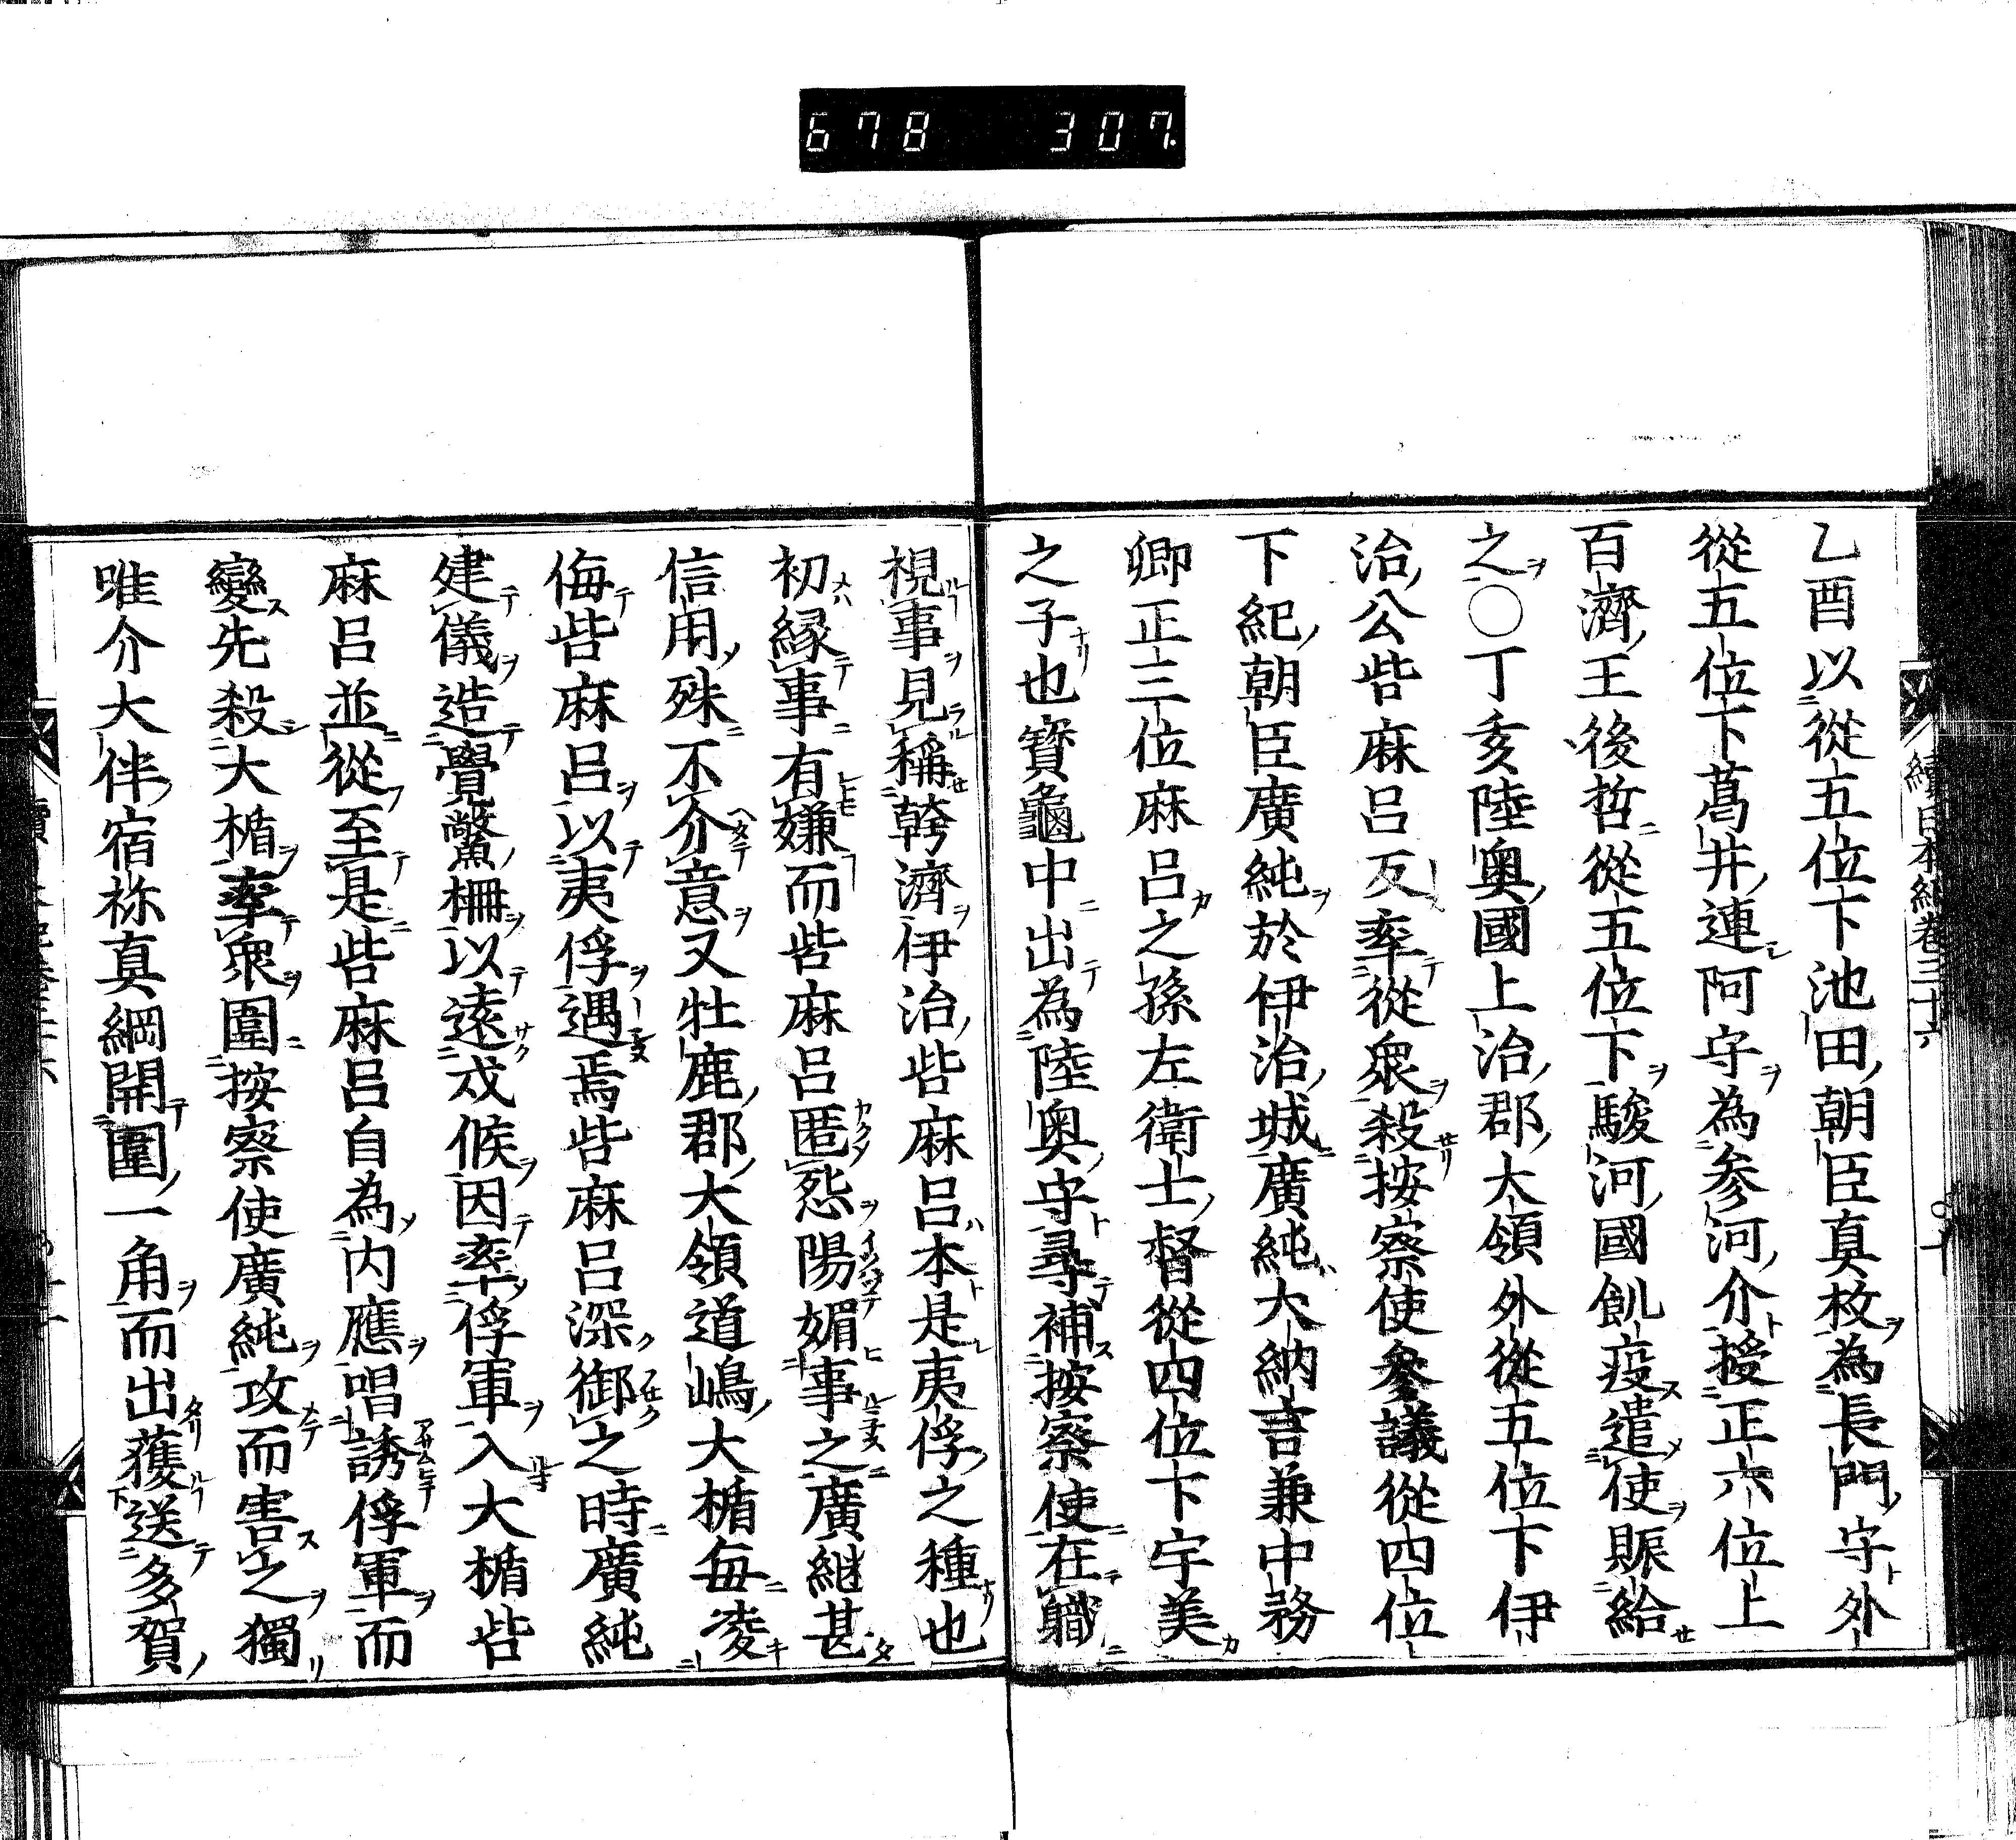 678 307.
續日本紀卷三十六
乙酉以從五位下池田朝臣真枚為長門守外
從五位下葛井連阿守為參河介授正六位上
百濟王後哲從五位下駿河國飢疫遣使賑給
之〇丁亥陸奧國上治郡大領外從五位下伊
治公呰麻呂反率從衆殺按察使參議從四位
下紀朝臣廣純於伊治城廣純大納言兼中務
卿正三位麻呂之孫左衛士督從四位下宇美
之子也寳龜中出為陸奧守尋補按察使在職
視事見稱幹濟伊治呰麻呂本是夷俘之種也
初縁事有嫌而呰麻呂匿怨陽媚事之廣継甚
信用殊不介意又牡鹿郡大領道嶋大楯毎凌
侮呰麻呂以夷俘遇焉呰麻呂深御之時廣純
建儀造覺鱉柵以遠戍候因率俘軍入大楯呰
麻呂並從至是呰麻呂自為内應唱誘俘軍而
變先殺大楯率衆圍按察使廣純攻而害之獨
唯介大伴宿祢真綱開圍一角而出獲送多賀